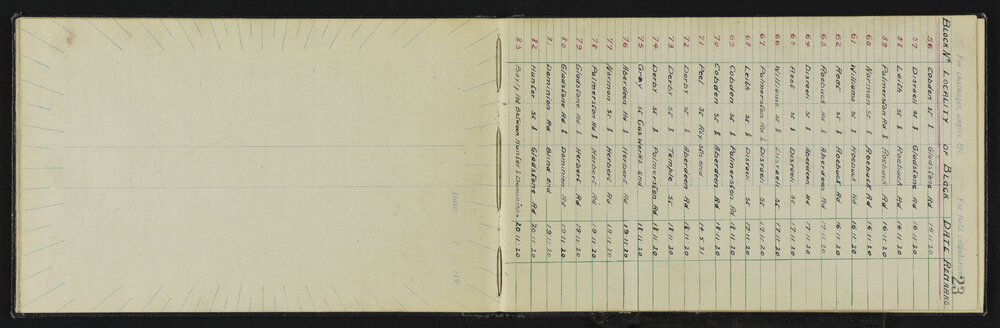 For chainages, angles, &c. For field calculations
23
BLOCK No LOCALITY OF BLOCK DATE REMARKS
56 Cobden St & Gladstone Rd 15.11.20
57 Disraeli St & Gladstone Rd 16.11.20
58 Leith St & Roebuck Rd 16.11.20
59 Palmerston Rd & Roebuck Rd 16.11.20
60 Norman St & Roebuck Rd 16.11.20
61 Williams St & Roebuck Rd 16.11.20
62 Root St & Roebuck Rd 16.11.20
63 Roebuck Rd & Aberdeen Rd 17.11.20
64 Disraeli St & Aberdeen Rd 17.11.20
65 Root St & Disraeli St 17.11.20
66 Williams St & Disraeli St 17.11.20
67 Palmerston Rd & Disraeli St 17.11.20
68 Leith St & Disraeli St 17.11.20
69 Cobden St & Palmerston Rd 18.11.20
70 Cobden St & Aberdeen Rd 18.11.20
71 Peel St Rly Stn end 14.5.21
72 Derby St & Aberdeen Rd 18.11.20
73 Derby St & Temple St 18.11.20
74 Derby St & Palmerston Rd 18.11.20
75 Grey St Gas works end 18.11.20
76 Aberdeen Rd & Herbert Rd 19.11.20
77 Norman St & Herbert Rd 19.11.20
78 Palmerston Rd & Herbert Rd 19.11.20
79 Gladstone Rd & Herbert Rd 19.11.20
80 Gladstone Rd & Dominion Rd 19.11.20
81 Dominion Rd Blind end 19.11.20
82 Hunter St & Gladstone Rd 20.11.20
83 Bayly Rd Between Hunter & Dominion 20.11.20
Date / /19